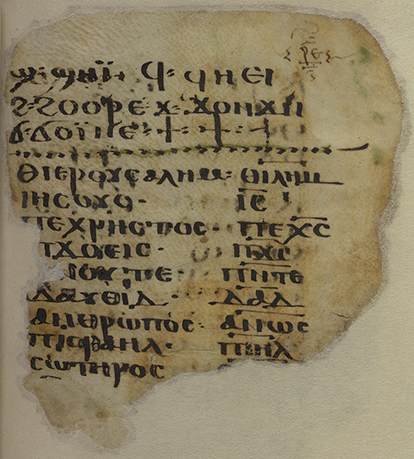 ⲣⲉ
ϣ· ϣⲏⲓ̈· ϥ· ϥⲏⲉⲓ
ϩ· ϩⲟⲟⲣⲉ ϫ·
ϭ· ϭⲟⲓ̈ⲡⲉ ·
ⲑⲓⲉⲣⲟⲩⲥⲁⲗⲏⲙ· ⲑⲓ̅ⲗ̅ⲏ̅ⲙ̅
ⲓⲏⲥⲟⲩⲥ· ⲓ̅ⲥ̅
ⲡⲉⲭⲣⲏⲥⲧⲟⲥ· ⲡⲉⲭ̅ⲥ̅
ⲡϫⲟⲉⲓⲥ· ⲡϫ̅ⲥ̅
ⲛⲟⲩⲧⲉ· ⲡⲛ̅ⲧⲉ
ⲇⲁⲩⲉⲓⲇ· ⲇ̅ⲁ̅ⲇ̅
ⲁⲛⲑⲣⲱⲡⲟⲥ· ⲁ̅ⲛ̅ⲱ̅ⲥ̅
ⲡⲓⲥⲣⲁⲏⲗ· ⲡⲓ̅ⲏ̅ⲗ̅
ⲥⲱⲧⲏⲣⲟⲥ